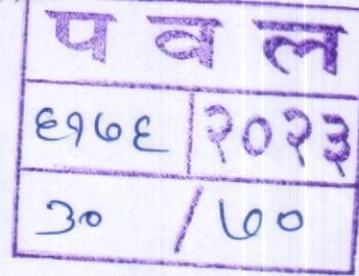 प व ल
६१७६ २०२३
३० / ७०